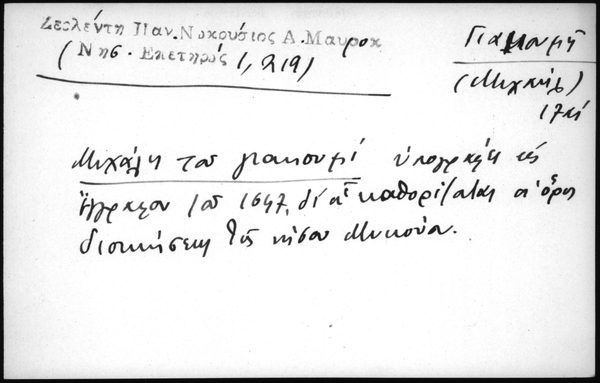 Ζερλέντη Παν. Νικρούσιος Δ. Μαυροκ
(Νησ. Επετηρίς 1, 219)
Γιακουμῆ
(Μιχαήλ)
Μιχάλη του γιακουμί ὑπογραφή εἰς
ἔγγραφον του 1647, δι' οὗ καθορίζονται οἱ ὅροι
διοικήσεως τῆς νήσου Μυκόνου.